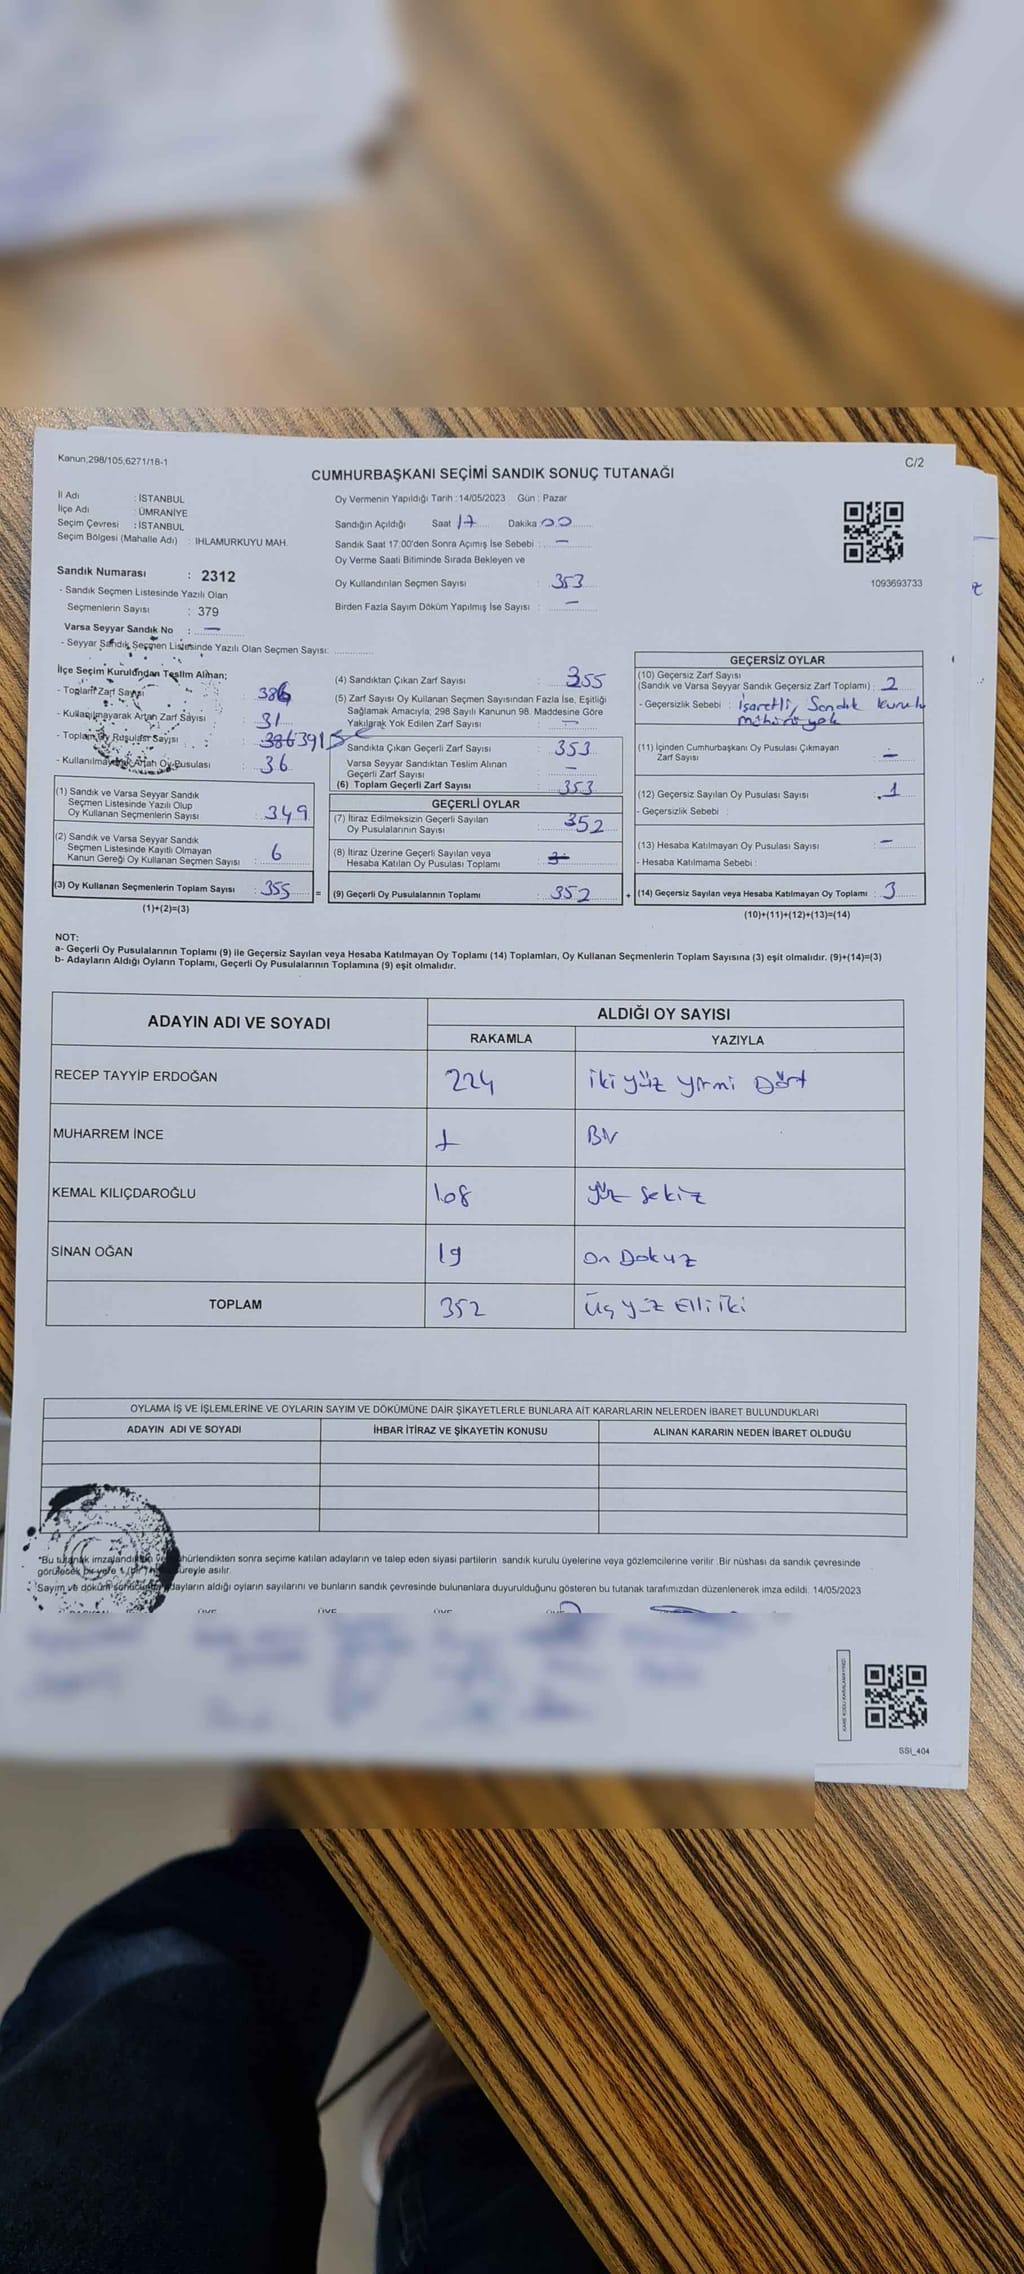 Kanun;298/105,6271/18-1
C/2
CUMHURBAŞKANI SEÇİMİ SANDIK SONUÇ TUTANAĞI
İl Adı : İSTANBUL
İlçe Adı : ÜMRANİYE
Seçim Çevresi : İSTANBUL
Seçim Bölgesi (Mahalle Adı) : IHLAMURKUYU MAH.
Sandık Numarası : 2312
- Sandık Seçmen Listesinde Yazılı Olan
Seçmenlerin Sayısı : 379
Varsa Seyyar Sandık No : —
- Seyyar Sandık Seçmen Listesinde Yazılı Olan Seçmen Sayısı: ............
Oy Vermenin Yapıldığı Tarih : 14/05/2023 Gün : Pazar
Sandığın Açıldığı Saat 17 Dakika 00
Sandık Saat 17.00'den Sonra Açımış İse Sebebi : —
Oy Verme Saati Bitiminde Sırada Bekleyen ve
Oy Kullandırılan Seçmen Sayısı : 353
Birden Fazla Sayım Döküm Yapılmış İse Sayısı : —
1093693733
İlçe Seçim Kurulundan Teslim Alınan;
- Toplam Zarf Sayısı : 386
- Kullanılmayarak Artan Zarf Sayısı : 31
- Toplam Oy Pusulası Sayısı : 386 391
- Kullanılmayarak Artan Oy Pusulası : 36
(1) Sandık ve Varsa Seyyar Sandık
Seçmen Listesinde Yazılı Olup
Oy Kullanan Seçmenlerin Sayısı : 349
(2) Sandık ve Varsa Seyyar Sandık
Seçmen Listesinde Kayıtlı Olmayan
Kanun Gereği Oy Kullanan Seçmen Sayısı : 6
(3) Oy Kullanan Seçmenlerin Toplam Sayısı : 355 =
(1)+(2)=(3)
(4) Sandıktan Çıkan Zarf Sayısı : 355
(5) Zarf Sayısı Oy Kullanan Seçmen Sayısından Fazla İse, Eşitliği
Sağlamak Amacıyla, 298 Sayılı Kanunun 98. Maddesine Göre
Yakılarak Yok Edilen Zarf Sayısı : —
Sandıkta Çıkan Geçerli Zarf Sayısı : 353
Varsa Seyyar Sandıktan Teslim Alınan
Geçerli Zarf Sayısı : —
(6) Toplam Geçerli Zarf Sayısı : 353
GEÇERLİ OYLAR
(7) İtiraz Edilmeksizin Geçerli Sayılan
Oy Pusulalarının Sayısı : 352
(8) İtiraz Üzerine Geçerli Sayılan veya
Hesaba Katılan Oy Pusulası Toplamı :
(9) Geçerli Oy Pusulalarının Toplamı : 352 +
GEÇERSİZ OYLAR
(10) Geçersiz Zarf Sayısı
(Sandık ve Varsa Seyyar Sandık Geçersiz Zarf Toplamı) : 2
- Geçersizlik Sebebi : İşaretli, Sandık kurulu
mührü yok
(11) İçinden Cumhurbaşkanı Oy Pusulası Çıkmayan
Zarf Sayısı : —
(12) Geçersiz Sayılan Oy Pusulası Sayısı : 1
- Geçersizlik Sebebi :
(13) Hesaba Katılmayan Oy Pusulası Sayısı : —
- Hesaba Katılmama Sebebi :
(14) Geçersiz Sayılan veya Hesaba Katılmayan Oy Toplamı : 3
(10)+(11)+(12)+(13)=(14)
NOT:
a- Geçerli Oy Pusulalarının Toplamı (9) ile Geçersiz Sayılan veya Hesaba Katılmayan Oy Toplamı (14) Toplamları, Oy Kullanan Seçmenlerin Toplam Sayısına (3) eşit olmalıdır. (9)+(14)=(3)
b- Adayların Aldığı Oyların Toplamı, Geçerli Oy Pusulalarının Toplamına (9) eşit olmalıdır.
ADAYIN ADI VE SOYADI
ALDIĞI OY SAYISI
RAKAMLA YAZIYLA
RECEP TAYYİP ERDOĞAN 224 iki yüz yirmi Dört
MUHARREM İNCE 1 Bir
KEMAL KILIÇDAROĞLU 108 yüz sekiz
SİNAN OĞAN 19 on Dokuz
TOPLAM 352 Üç yüz Elli iki
OYLAMA İŞ VE İŞLEMLERİNE VE OYLARIN SAYIM VE DÖKÜMÜNE DAİR ŞİKAYETLERLE BUNLARA AİT KARARLARIN NELERDEN İBARET BULUNDUKLARI
ADAYIN ADI VE SOYADI İHBAR İTİRAZ VE ŞİKAYETİN KONUSU ALINAN KARARIN NEDEN İBARET OLDUĞU
*Bu tutanak imzalandıktan ve mühürlendikten sonra seçime katılan adayların ve talep eden siyasi partilerin sandık kurulu üyelerine veya gözlemcilerine verilir. Bir nüshası da sandık çevresinde
görülecek bir yere 1 (bir) süreyle asılır.
Sayım ve döküm sonucunda adayların aldığı oyların sayılarını ve bunların sandık çevresinde bulunanlara duyurulduğunu gösteren bu tutanak tarafımızdan düzenlenerek imza edildi. 14/05/2023
SSİ_404